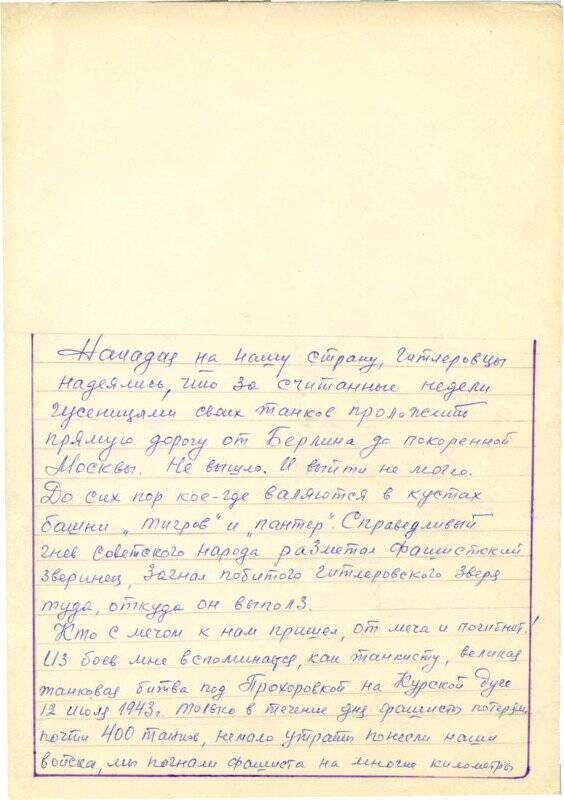 Нападая на нашу страну, гитлеровцы
надеялись, что за считанные недели
гусеницами своих танков проложить
прямую дорогу от Берлина до покоренной
Москвы. Не вышло. И выйти не могло.
До сих пор кое-где валяются в кустах
башни „тигров" и „пантер". Справедливый
гнев советского народа разметал фашистский
зверинец, загнал побитого гитлеровского зверя
туда, откуда он выполз.
Кто с мечом к нам пришел, от меча и погибнет!
Из боев мне вспоминается, как танкисту, великая
танковая битва под Прохоровкой на Курской дуге
12 июля 1943г. только в течение дня фашисты потеряли
почти 400 танков, немало утрат понесли наши
войска, мы погнали фашиста на многие километры